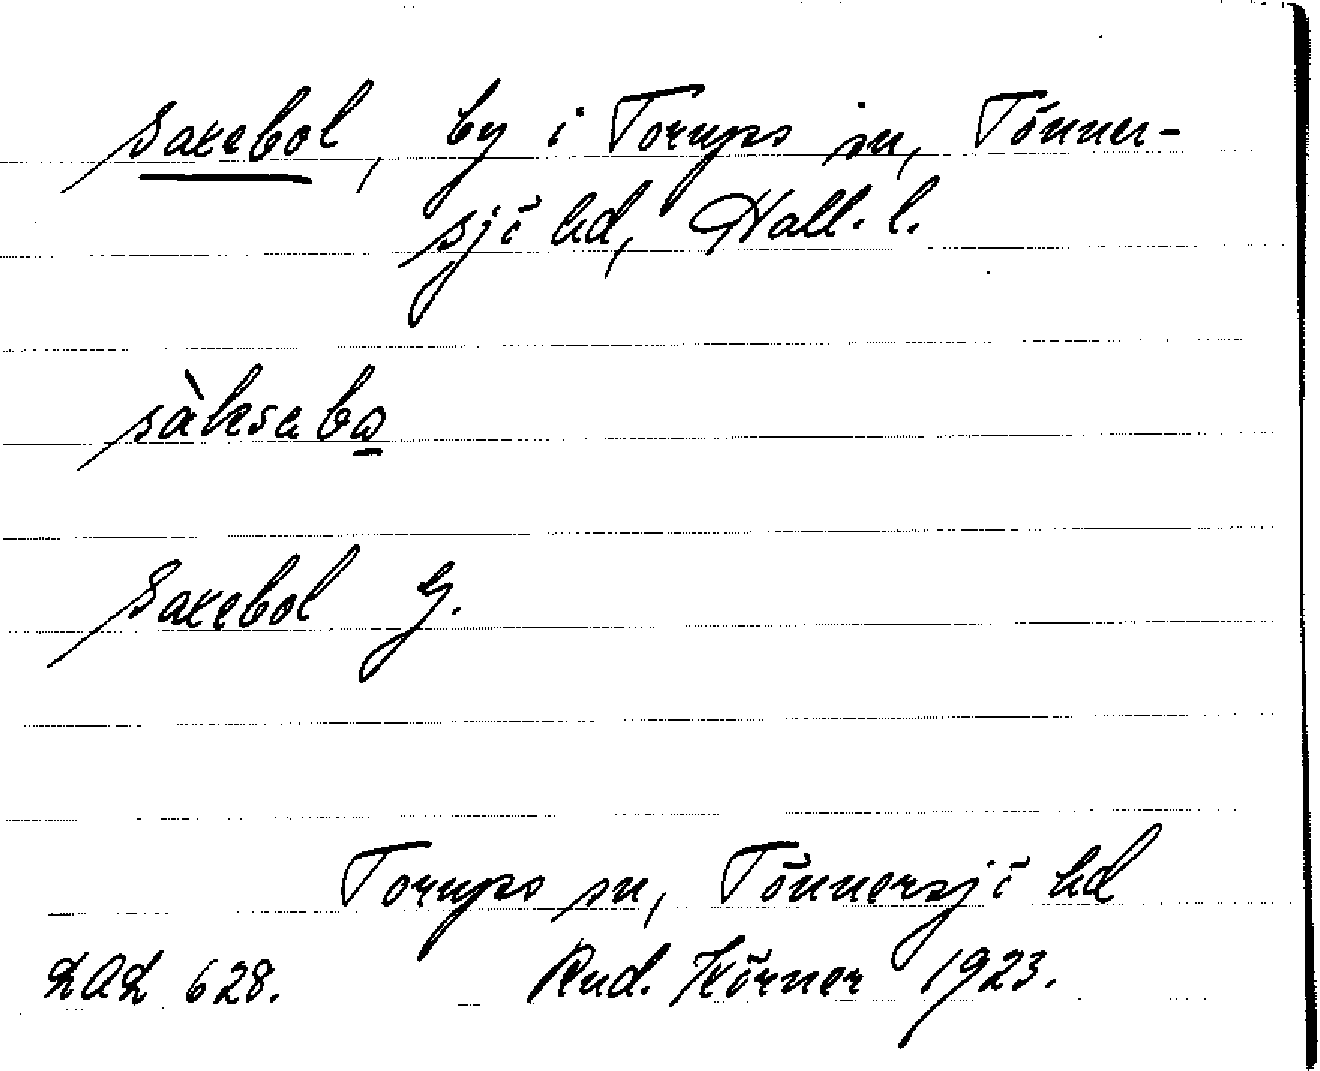 Saxebol, by i Torups sn, Tönner-
sjö hd, Hall. l.
sàksabo
Saxebol G.
Torups sn, Tönnersjö hd
LAL 628. Rud. Körner 1923.